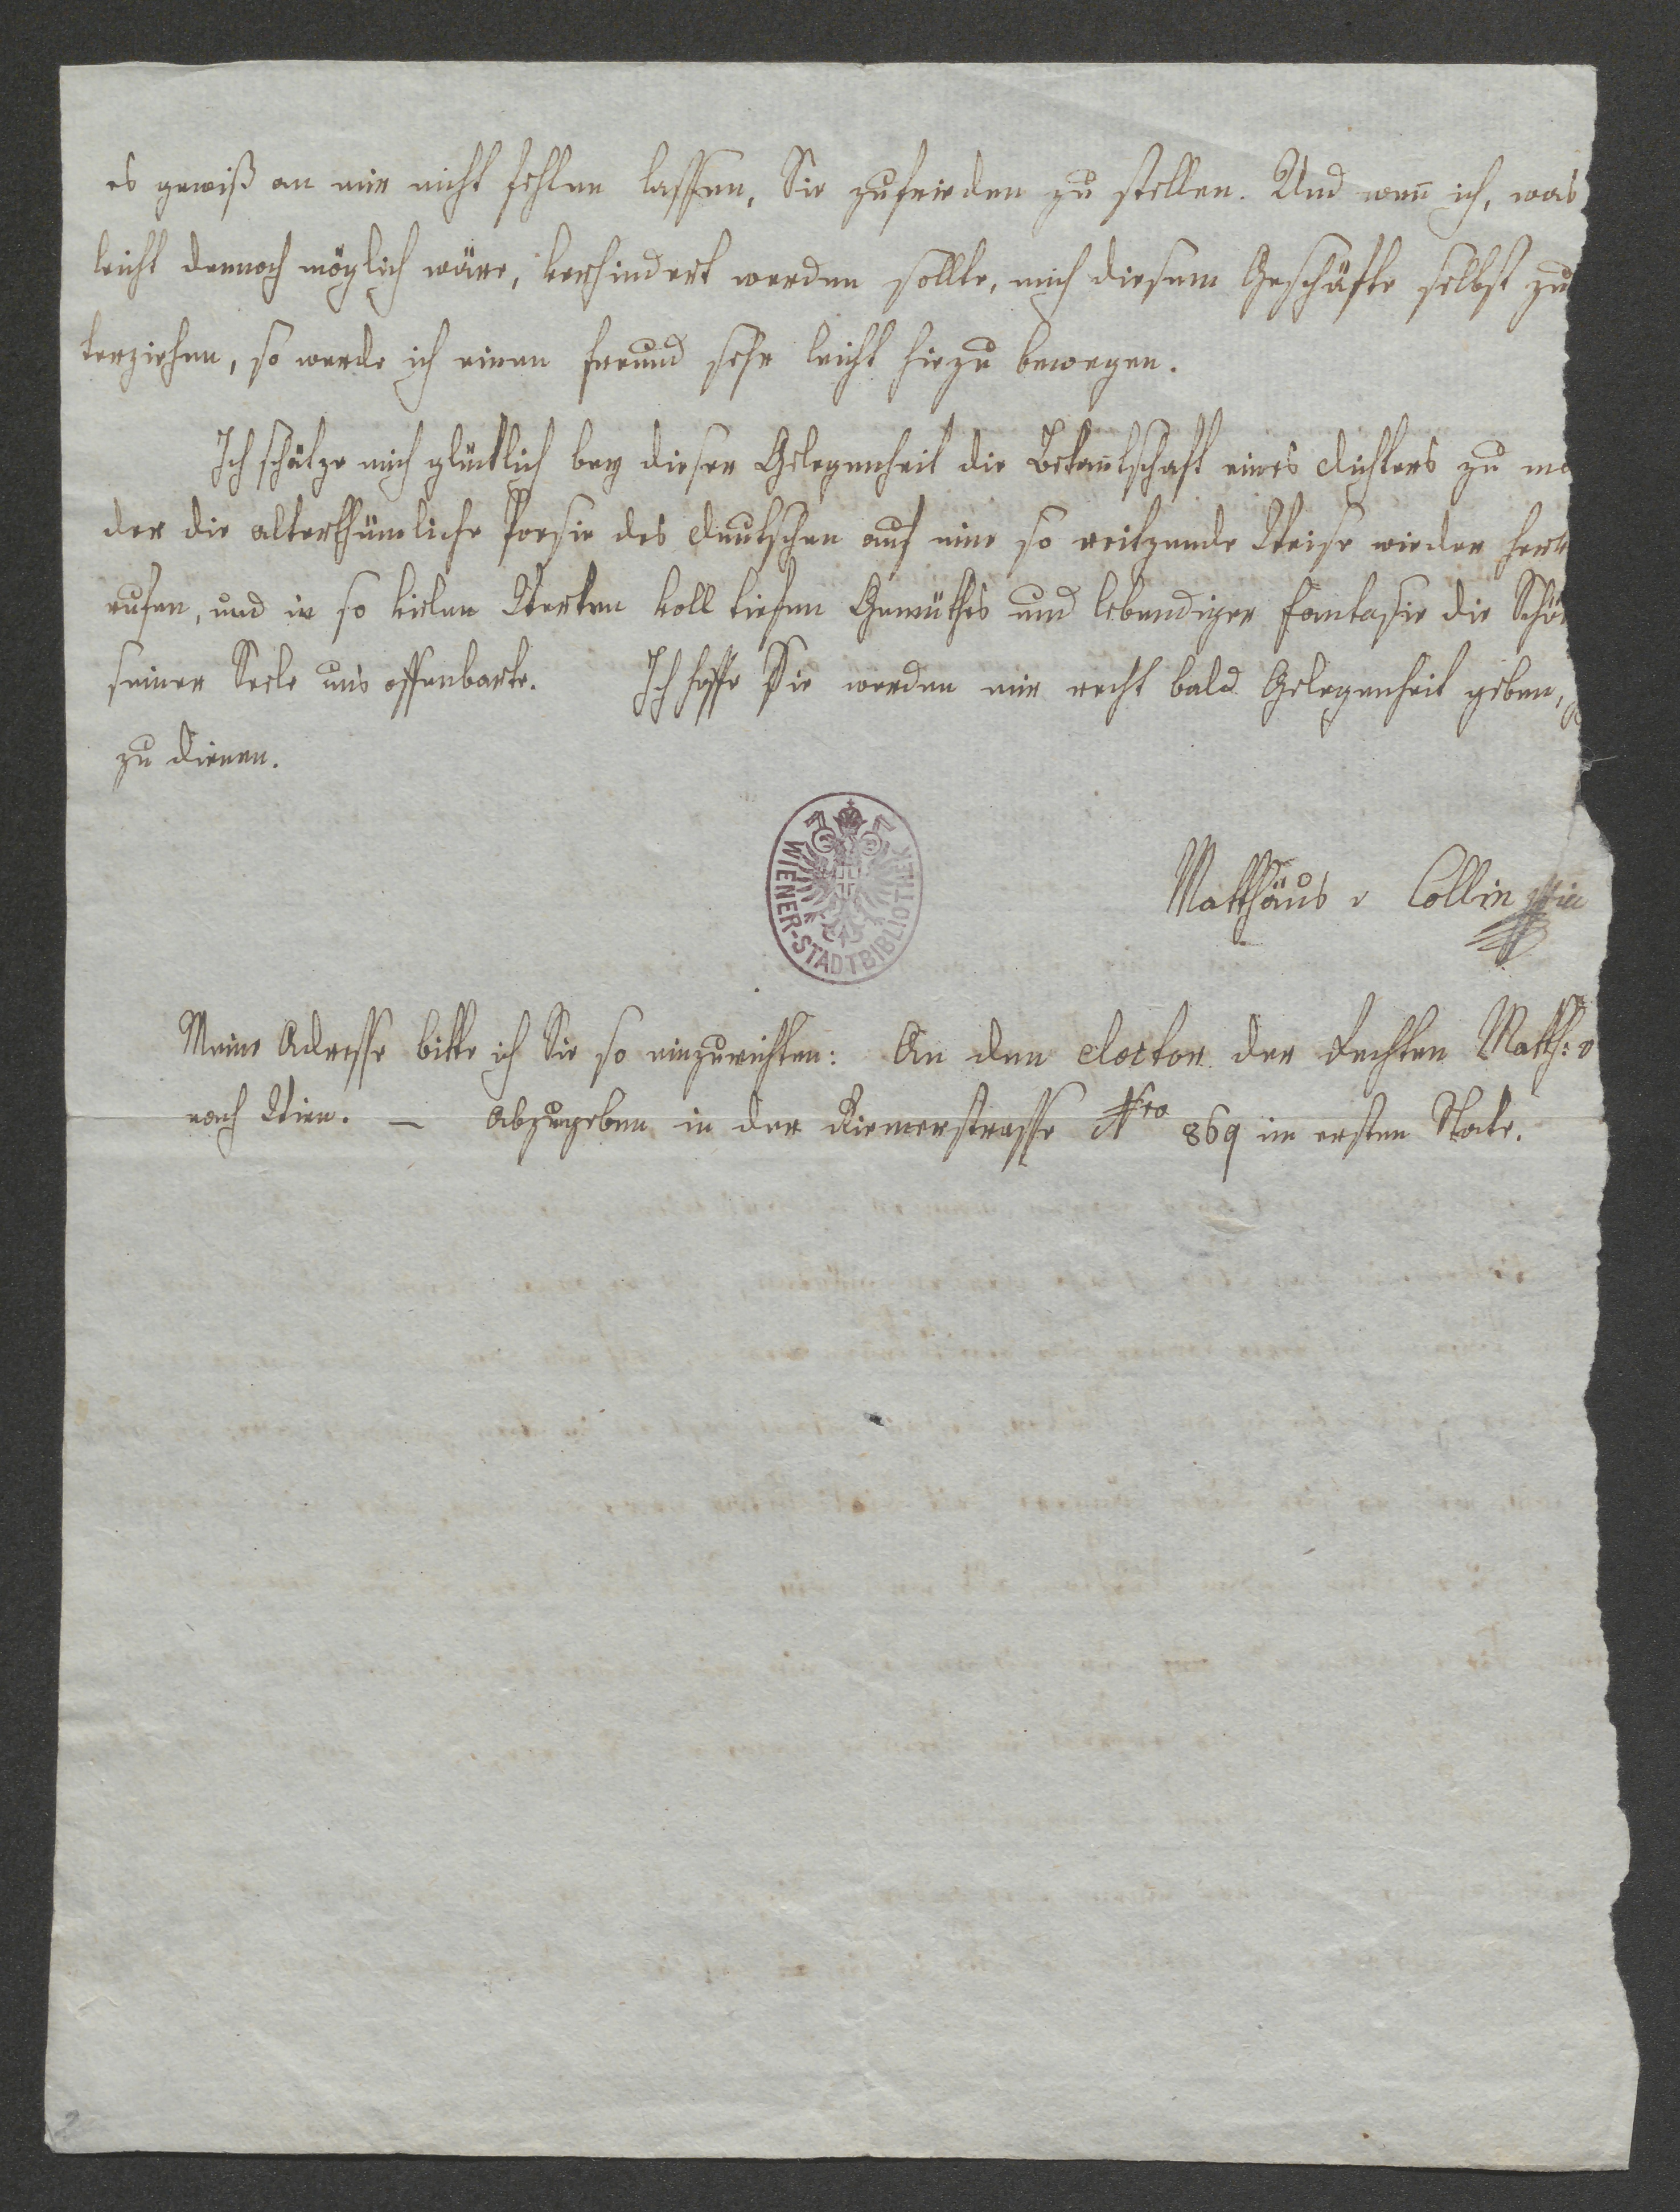 es gewiß an mir nicht fehlen lassen, Sie zufrieden zu stellen. Und wen̄ ich, was
leicht dennoch möglich wäre, verhindert werden sollte, mich diesem Geschäfte selbst zu
terziehen, so werde ich einen Freund sehr leicht hiezu bewegen.
Ich schätze mich glücklich bey dieser Gelegenheit die Bekan̄tschaft eines Dichters zu ma
der die alterthümliche Poesie des Deutschen auf eine so reitzende Weise wieder herv
rufen, und in so vielen Werken voll tiefen Gemüthes und lebendiger Fantasie die Schö
seiner Seele uns offenbarte. Ich hoffe Sie werden mir recht bald Gelegenheit geben,
zu dienen.
WIENER-STADTBIBLIOTHEK
Matthäus v Collin
Meine Adresse bitte ich Sie so einzurichten: An den Doctor der Rechten Matth: v
nach Wien. — Abzugeben in der Riemerstrasse Nro 869 im ersten Stocke.
2